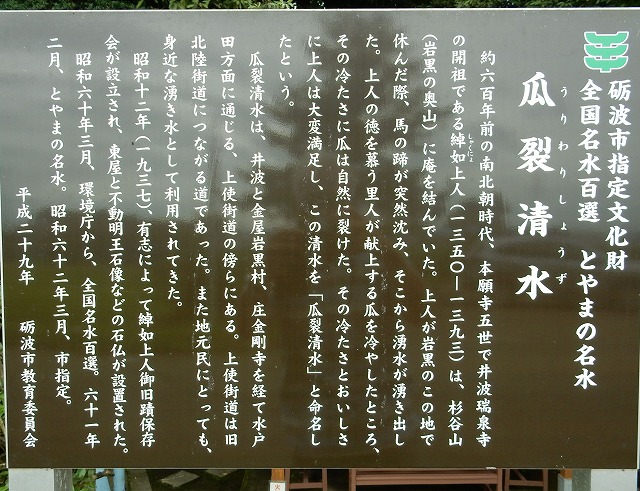 砺波市指定文化財
全国名水百選　とやまの名水
うりわりしょうず
瓜裂清水
約六百年前の南北朝時代、本願寺五世で井波瑞泉寺
の開祖である綽如上人（一三五〇―一三九三）は、杉谷山
しゃくにょ
（岩黒の奥山）に庵を結んでいた。上人が岩黒のこの地で
休んだ際、馬の蹄が突然沈み、そこから湧水が湧き出し
た。上人の徳を慕う里人が献上する瓜を冷やしたところ、
その冷たさに瓜は自然に裂けた。その冷たさとおいしさ
に上人は大変満足し、この清水を「瓜裂清水」と命名し
たという。
瓜裂清水は、井波と金屋岩黒村、庄金剛寺を経て水戸
田方面に通じる、上使街道の傍らにある。上使街道は旧
北陸街道につながる道であった。また地元民にとっても、
身近な湧き水として利用されてきた。
昭和十二年（一九三七）、有志によって綽如上人御旧蹟保存
会が設立され、東屋と不動明王石像などの石仏が設置された。
昭和六十年三月、環境庁から、全国名水百選。六十一年
二月、とやまの名水。昭和六十二年三月、市指定。
平成二十九年　砺波市教育委員会